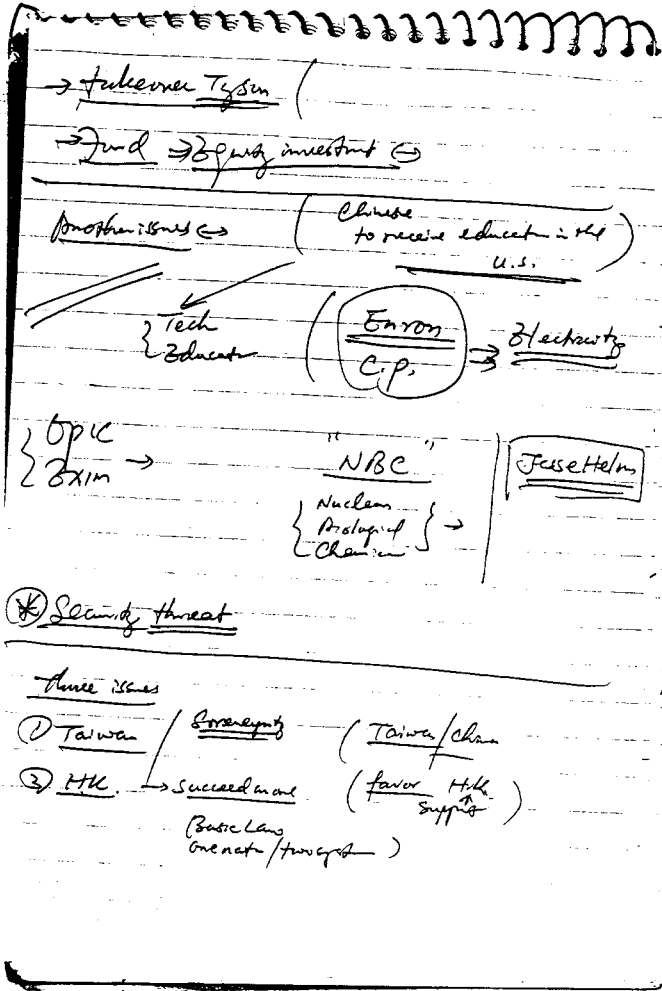 → takeover Tyson (
→ Fund ⇒ Equity investment ↔
Another issues ↔ ( Chinese
to receive education in the )
U.S.
{ Tech
Educat
( Enron ⇒ Electricity
C.P.
{ Opic
Exim →
"NBC"
Jesse Helms
{ Nuclear
Biological
Chemical } →
* Security threat
three issues
① Taiwan / Sovereignty ( Taiwan / China
② HK. → succeed
( favor HK )
support
Basic Law
one nation / two system )